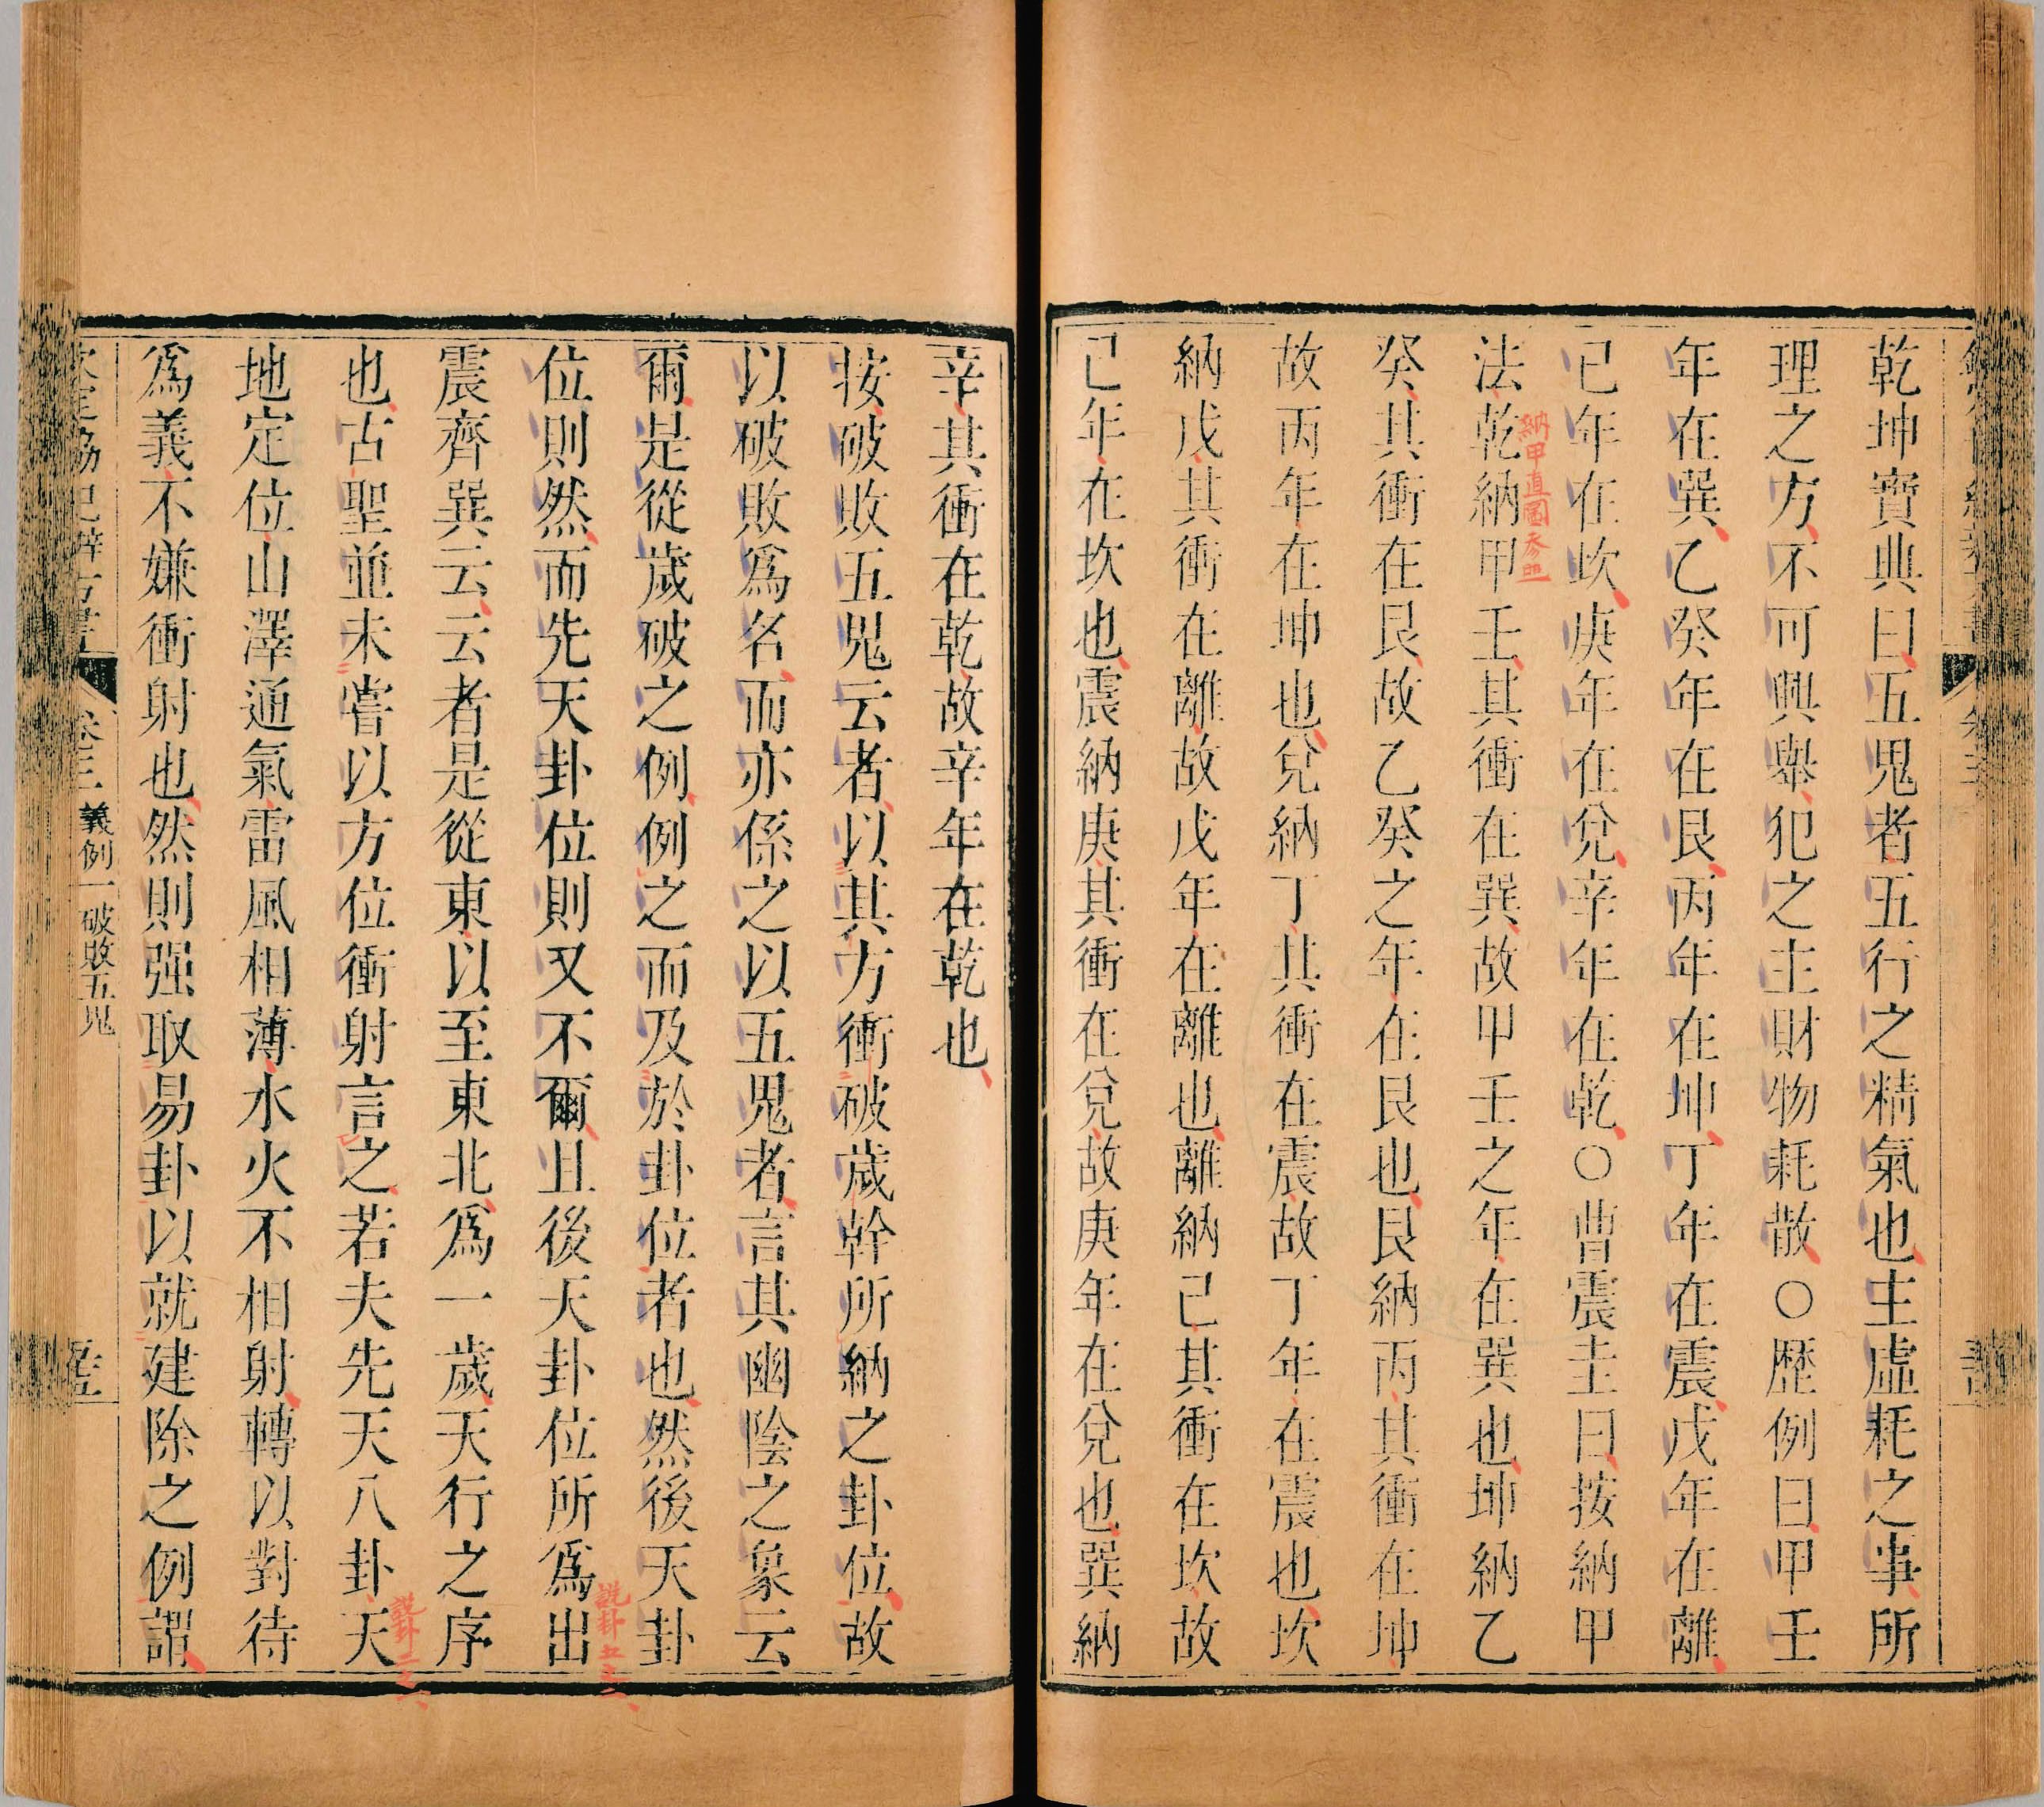 乾坤寶典曰五鬼者五行之精氣也主虛耗之事所
理之方不可興舉犯之主財物耗散○歷例曰甲壬
年在巽乙癸年在艮丙年在坤丁年在震戊年在離
己年在坎庚年在兌辛年在乾○曹震圭曰按納甲
法乾納甲壬其衝在巽故甲壬之年在巽也坤納乙
納甲直圖參照
癸其衝在艮故乙癸之年在艮也艮納丙其衝在坤
故丙年在坤也兌納丁其衝在震故丁年在震也坎
納戊其衝在離故戊年在離也離納己其衝在坎故
己年在坎也震納庚其衝在兌故庚年在兌也巽納
辛其衝在乾故辛年在乾也
按破敗五鬼云者以其方衝破歲幹所納之卦位故
以破敗爲名而亦係之以五鬼者言其幽陰之象云
爾是從歲破之例例之而及於卦位者也然後天卦
位則然而先天卦位則又不爾且後天卦位所爲出
說卦五之二
震齊巽云云者是從東以至東北爲一歲天行之序
也古聖並未嘗以方位衝射言之若夫先天八卦天
說卦三之一
地定位山澤通氣雷風相薄水火不相射轉以對待
爲義不嫌衝射也然則强取易卦以就建除之例謂
卷三 義例一破敗五鬼